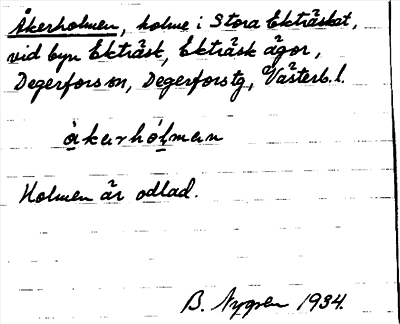 Åkerholmen, holme i Stora Ekträsket,
vid byn Ekträsk, Ekträsk ägor,
Degerfors sn, Degerfors tg, Västerb. l.
åkarhólman
Holmen är odlad.
B. Nygren 1934.